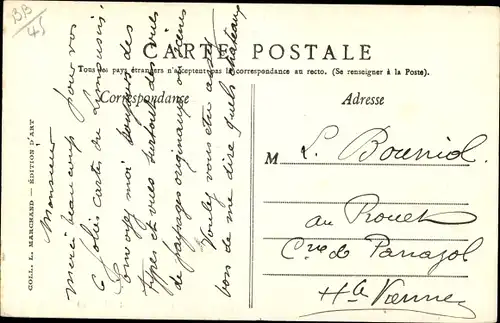 BB
45
CARTE POSTALE
Tous les pays étrangers n'acceptent pas la correspondance au recto. (Se renseigner à la Poste).
Correspondance
Adresse
COLL. L. MARCHAND — ÉDITION D'ART
Monsieur
Merci beaucoup pour vos
6 jolies cartes du Limousin,
moi toujours des
types et vues surtout des vues
de paysages originaux ou scènes
Voulez vous être assez
bon de me dire quels châteaux
M L. Bouniol
au Prouet
Cne de Panazol
Hte Vienne